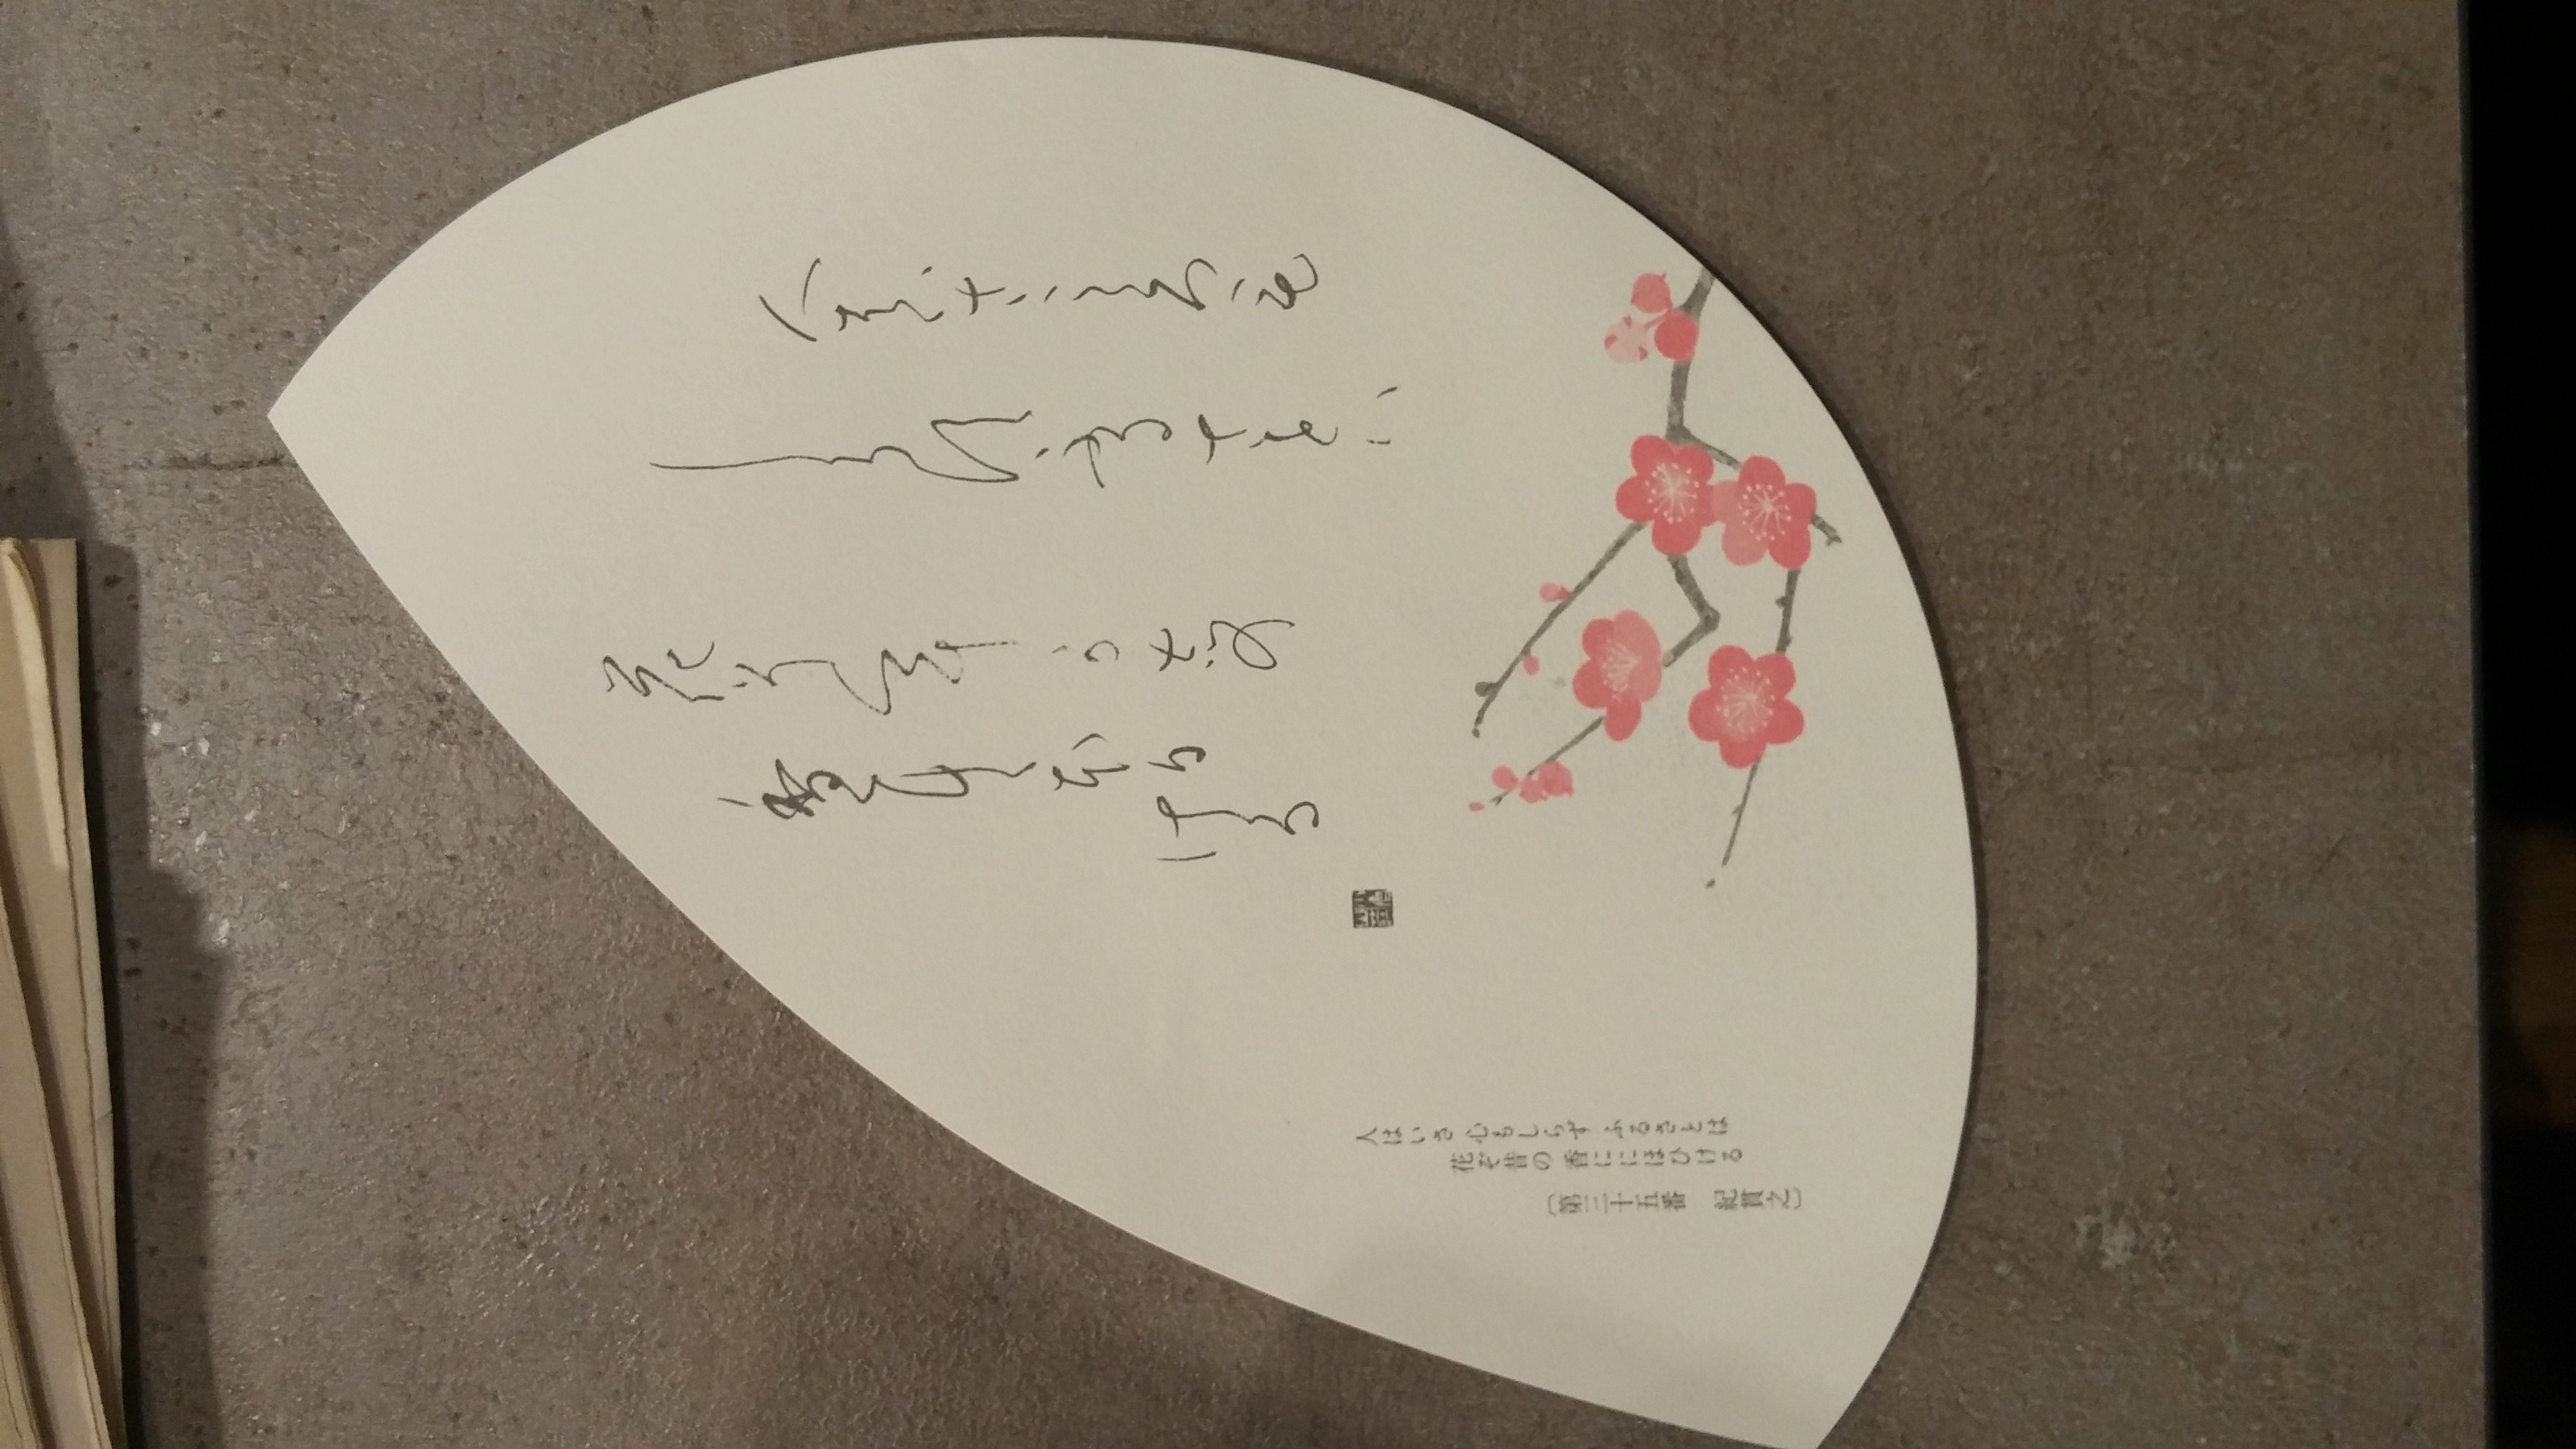 人はいさこころも
しらすふるさとハ
花そむかしの
香ににほひ
ける
人はいさ 心もしらず ふるさとは
花ぞ昔の 香ににほひける
〔第三十五番 紀貫之〕